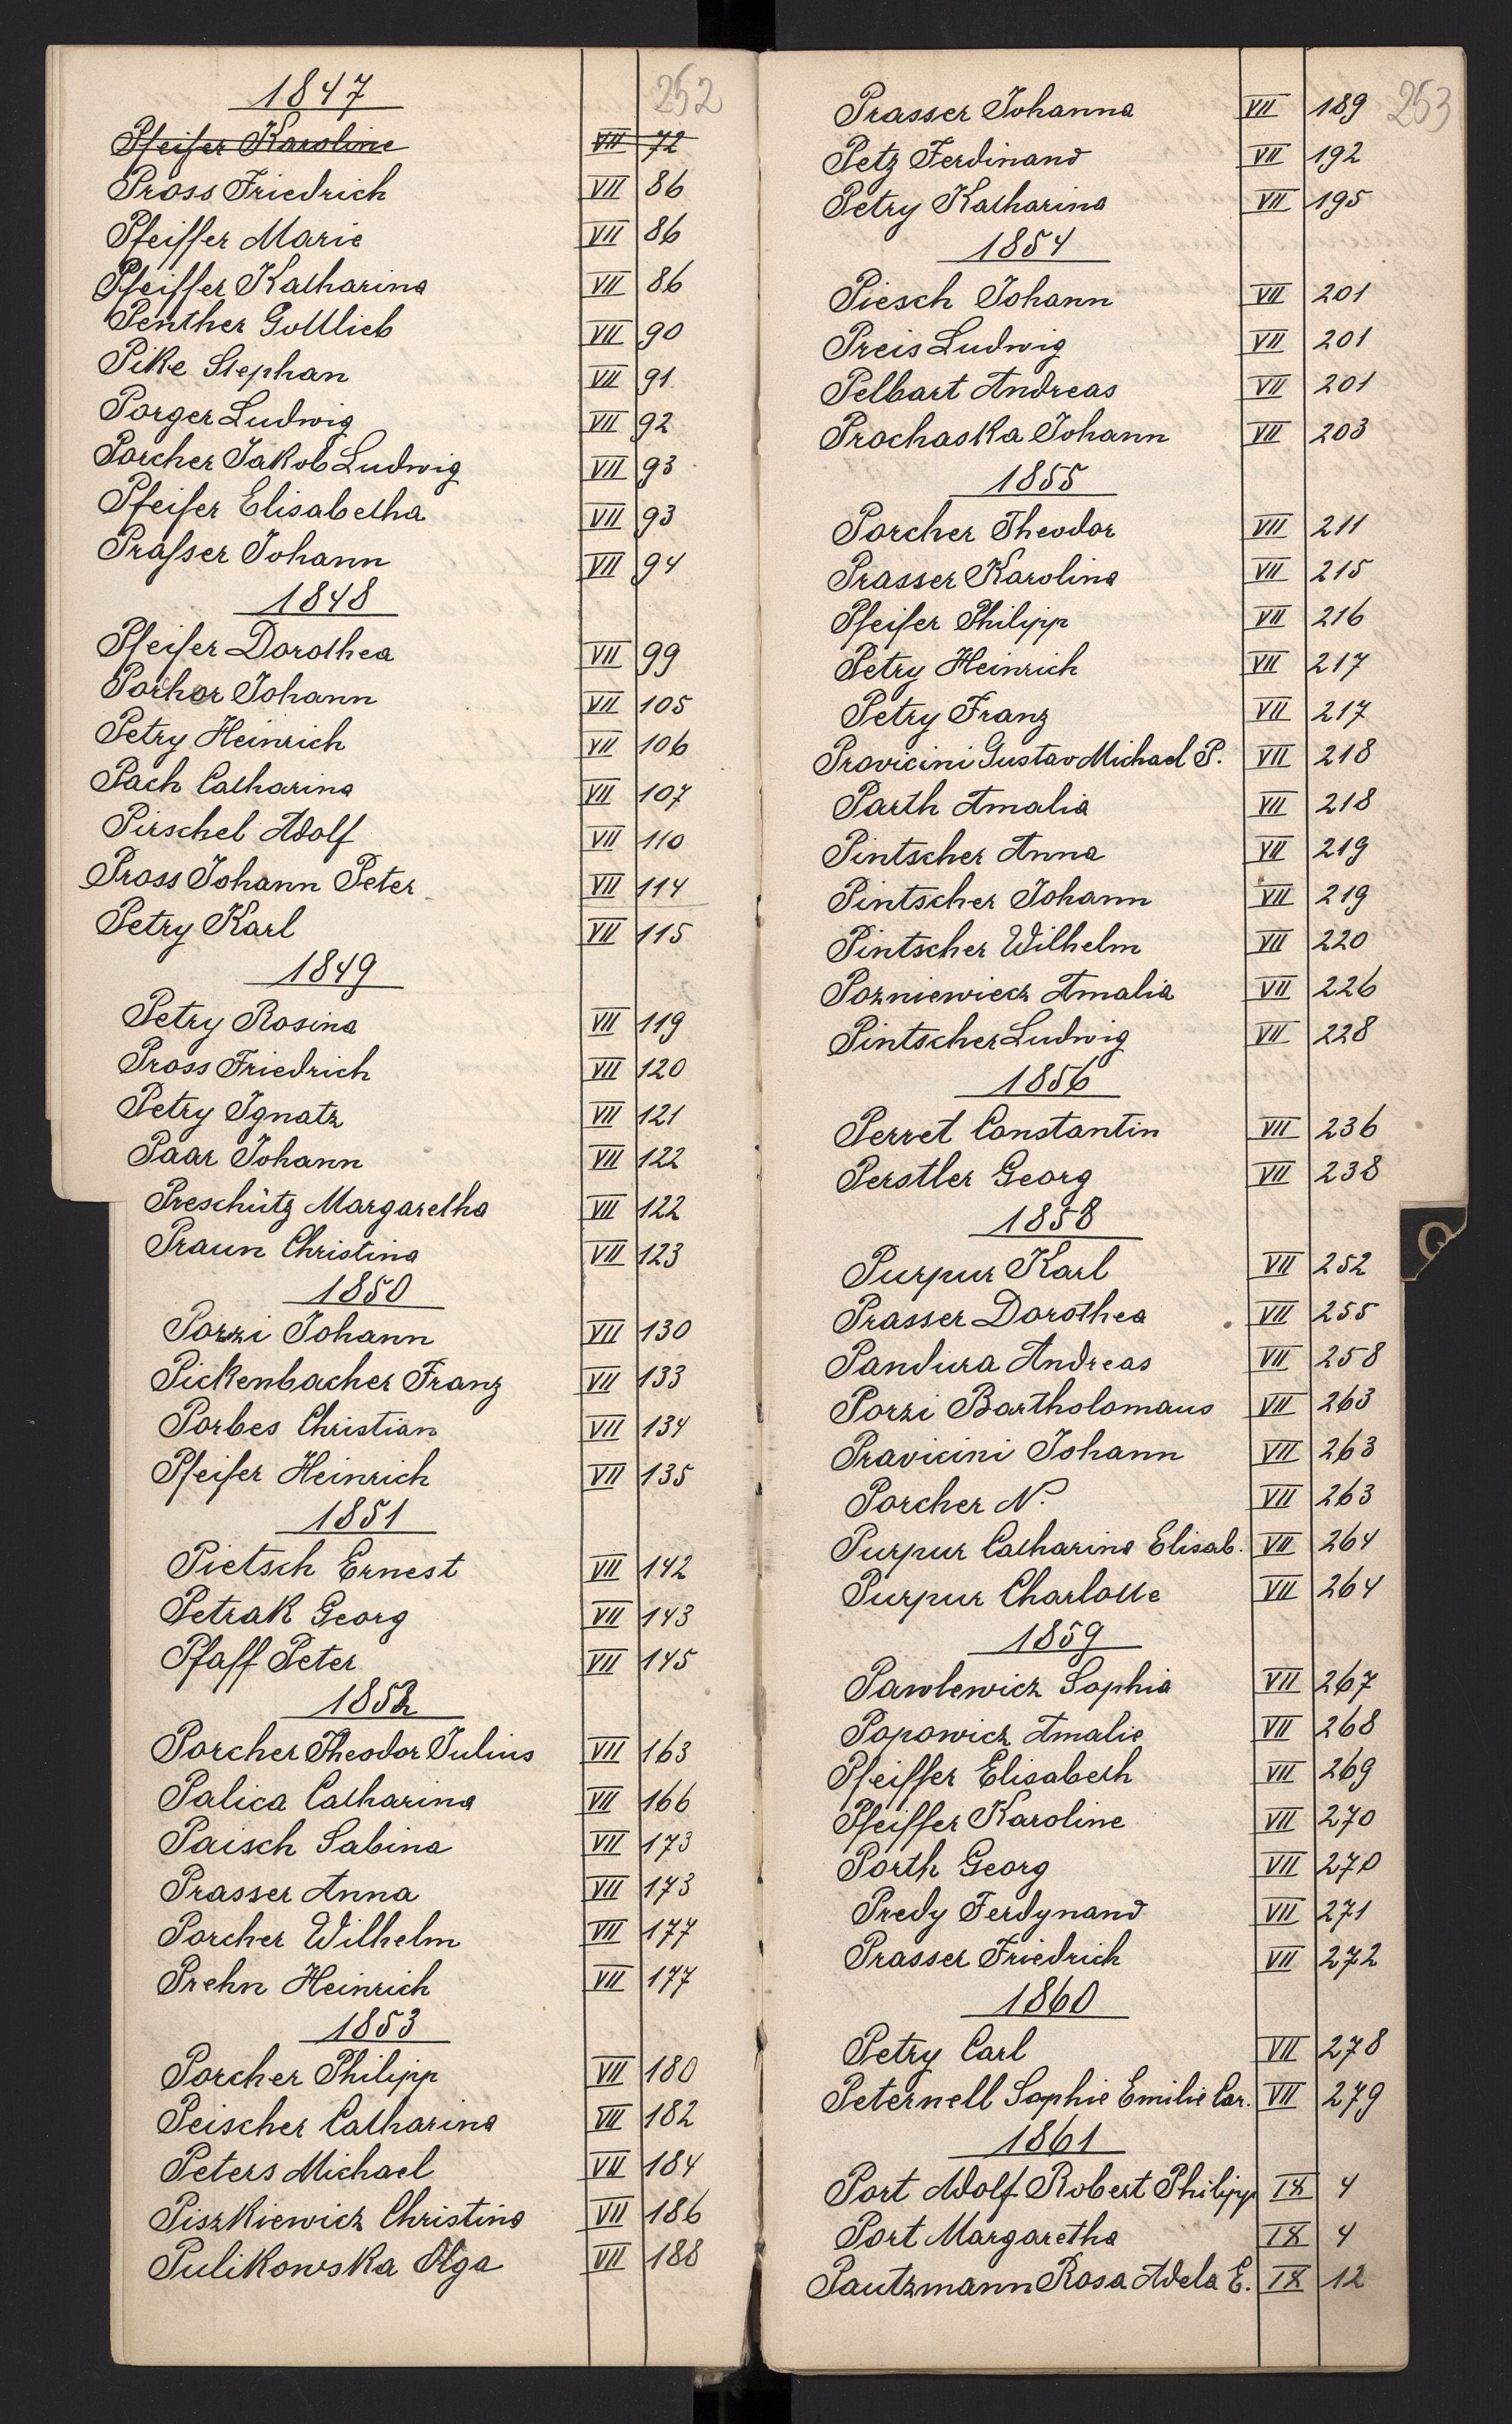 252
1847
Pfeifer Karoline VII 72
Pross Friedrich VII 86
Pfeiffer Marie VII 86
Pfeiffer Katharina VII 86
Penther Gottlieb VII 90
Pike Stephan VII 91
Porger Ludwig VII 92
Porcher Jakob Ludwig VII 93
Pfeifer Elisabetha VII 93
Praſser Johann VII 94
1848
Pfeifer Dorothea VII 99
Porher Johann VII 105
Petry Heinrich VII 106
Pach Catharina VII 107
Pirschel Adolf VII 110
Pross Johann Peter VII 114
Petry Karl VII 115
1849
Petry Rosina VII 119
Pross Friedrich VII 120
Petry Ignatz VII 121
Paar Johann VII 122
Preschütz Margaretha VII 122
Praun Christina VII 123
1850
Pozzi Johann VII 130
Pickenbacher Franz VII 133
Porbes Christian VII 134
Pfeifer Heinrich VII 135
1851
Pietsch Ernest VII 142
Petrak Georg VII 143
Pfaff Peter VII 145
1852
Porcher Theodor Julius VII 163
Palica Catharina VII 166
Paisch Sabina VII 173
Prasser Anna VII 173
Porcher Wilhelm VII 177
Prehn Heinrich VII 177
1853
Porcher Philipp VII 180
Peischer Catharina VII 182
Peters Michael VII 184
Piszkiewicz Christina VII 186
Pulikowska Olga VII 188
253
Prasser Johanna VII 189
Petz Ferdinand VII 192
Petry Katharina VII 195
1854
Piesch Johann VII 201
Preis Ludwig VII 201
Pelbart Andreas VII 201
Prochaska Johann VII 203
1855
Porcher Theodor VII 211
Prasser Karolina VII 215
Pfeifer Philipp VII 216
Petry Heinrich VII 217
Petry Franz VII 217
Provicini Gustav Michael P. VII 218
Parth Amalia VII 218
Pintscher Anna VII 219
Pintscher Johann VII 219
Pintscher Wilhelm VII 220
Pozniewiecz Amalia VII 226
Pintscher Ludwig VII 228
1856
Perret Constantin VII 236
Perstler Georg VII 238
1858
Purpur Karl VII 252
Prasser Dorothea VII 255
Pandura Andreas VII 258
Porzi Bartholomaus VII 263
Pravicini Johann VII 263
Porcher N. VII 263
Purpur Catharina Elisab. VII 264
Purpur Charlotte VII 264
1859
Pawlewicz Sophia VII 267
Popowicz Amalie VII 268
Pfeiffer Elisabeth VII 269
Pfeiffer Karoline VII 270
Porth Georg VII 270
Predy Ferdynand VII 271
Prasser Friedrich VII 272
1860
Petry Carl VII 278
Peternell Sophie Emilie Car. VII 279
1861
Port Adolf Robert Philipp IX 4
Port Margaretha IX 4
Pautzmann Rosa Adela E. IX 12
Q